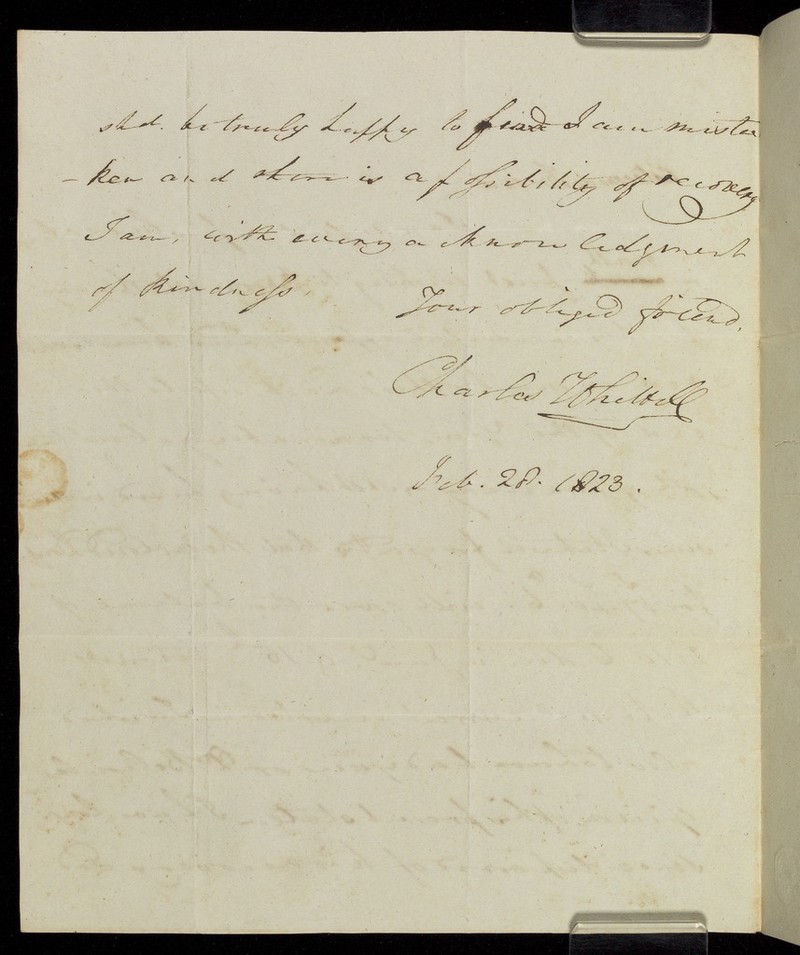 shd. be truly happy to find I am mista
-ken and there is a possibility of recovery
I am, with every acknowledgment
of kindness,
Your obliged friend,
Charles Whittell
Feb. 28. 1823.